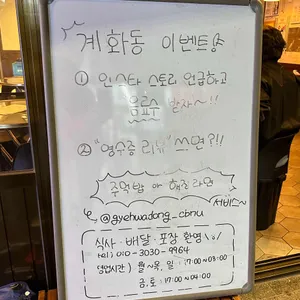 계화동 이벤트
① 인스타 스토리 언급하고
음료수 받자~!!
② "영수증 리뷰" 쓰면?!!
주먹밥 or 해장라면
서비스~
@gyehwadong_cbnu
식사·배달·포장 환영
tel) 010-3030-9964
영업시간) 월~목, 일: 17:00~03:00
금·토: 17:00~04:00